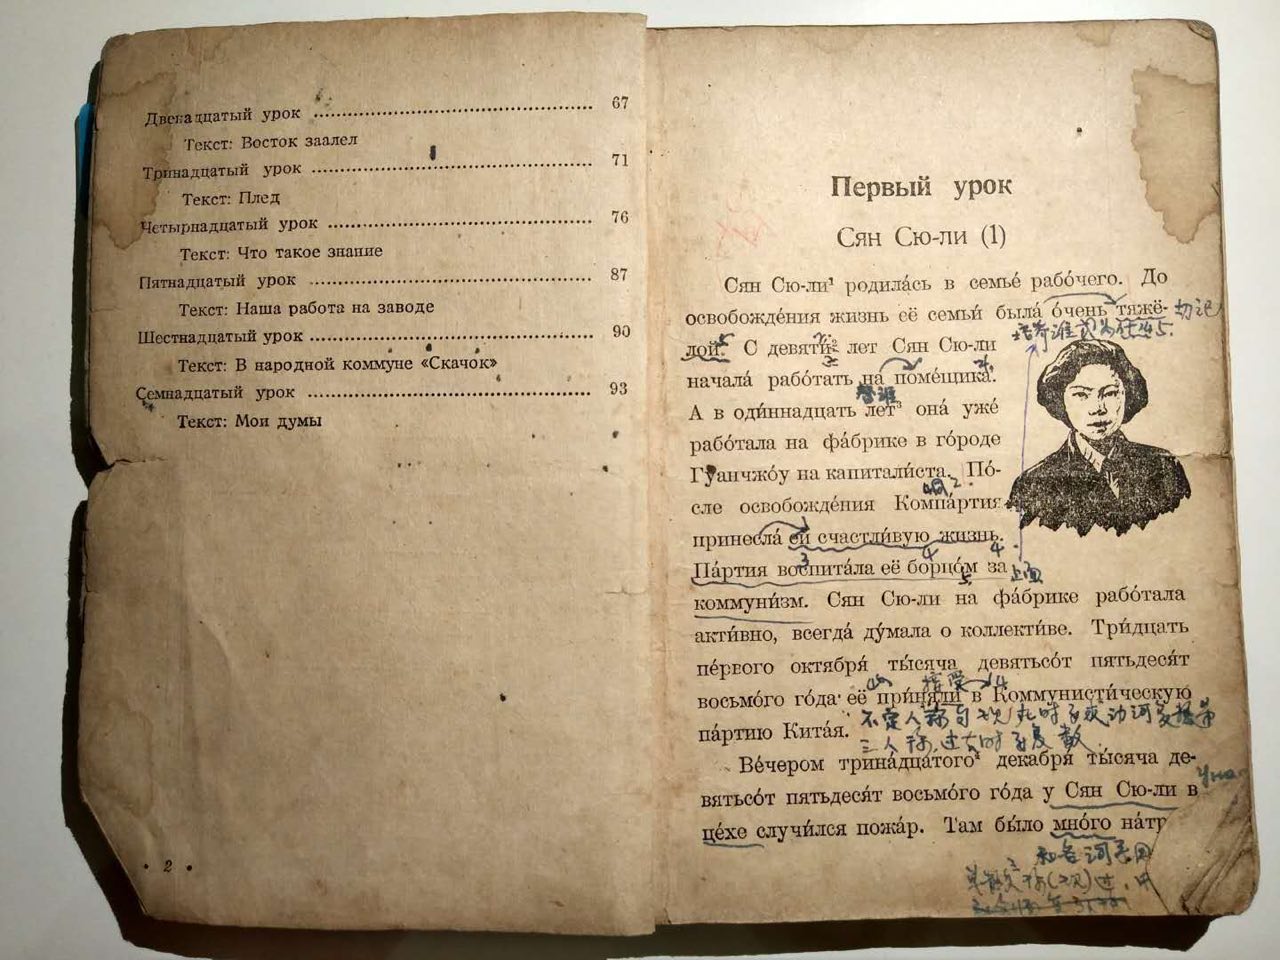 Двенадцатый урок ........................................ 67
Текст: Восток заалел
Тринадцатый урок ........................................ 71
Текст: Плед
Четырнадцатый урок ........................................ 76
Текст: Что такое знание
Пятнадцатый урок ........................................ 87
Текст: Наша работа на заводе
Шестнадцатый урок ........................................ 90
Текст: В народной коммуне «Скачок»
Семнадцатый урок ........................................ 93
Текст: Мои думы
• 2 •
Первый урок
Сян Сю-ли (1)
Сян Сю-ли¹ родила́сь в семье́ рабо́чего. До
освобожде́ния жизнь её семьи́ была́ о́чень тяжё-
лой. С девяти́² лет Сян Сю-ли
начала́ рабо́тать на поме́щика.
А в оди́ннадцать лет³ она́ уже́
рабо́тала на фа́брике в го́роде
Гуанчжо́у на капитали́ста. По́-
сле освобожде́ния Компа́ртия
принесла́ ей счастли́вую жизнь.
Па́ртия воспита́ла её борцо́м за
коммуни́зм. Сян Сю-ли на фа́брике рабо́тала
акти́вно, всегда́ ду́мала о коллекти́ве. Три́дцать
пе́рвого октября́ ты́сяча девятьсо́т пятьдеся́т
восьмо́го го́да её при́няли в Коммунисти́ческую
па́ртию Кита́я.
三人称,过去时
Ве́чером трина́дцатого декабря́ ты́сяча де-
вятьсо́т пятьдеся́т восьмо́го го́да у Сян Сю-ли в
це́хе случи́лся пожа́р. Там бы́ло мно́го